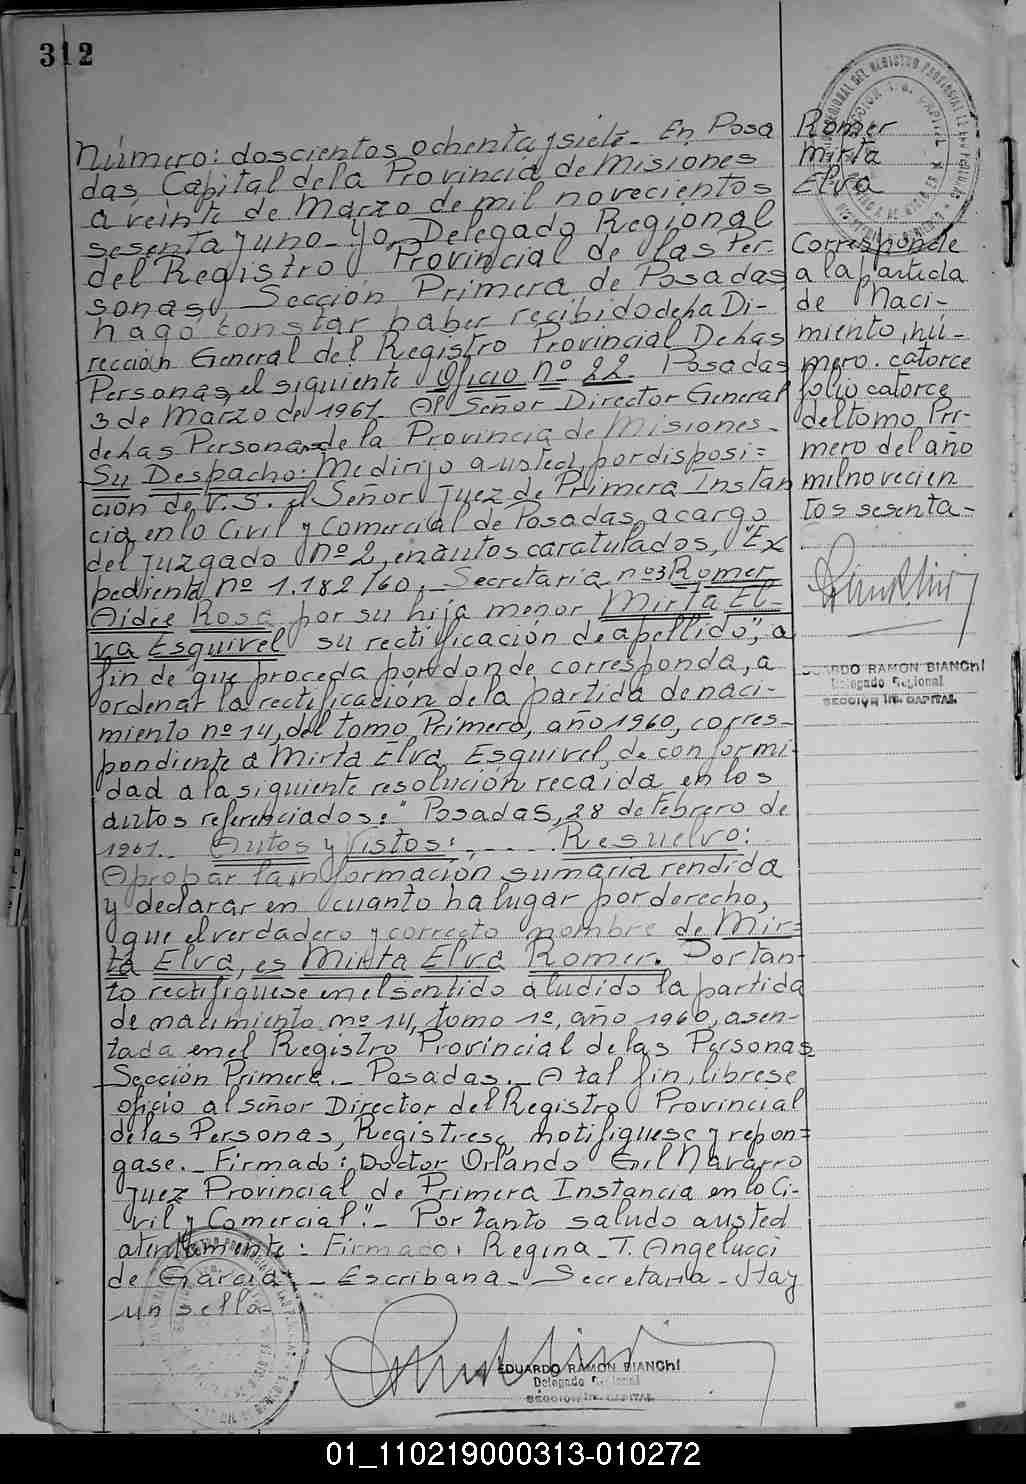 312
Número: doscientos ochenta y siete - En Posa
das, Capital de la Provincia de Misiones
a veinte de Marzo de mil novecientos
sesenta y uno - Yo, Delegado Regional
del Registro Provincial de las Per-
sonas, Sección Primera, de Posadas,
hago constar haber recibido de la Di-
rección General del Registro Provincial De las
Personas, el siguiente Oficio nº 22. Posadas
3 de Marzo de 1961. Al Señor Director General
de las Personas de la Provincia de Misiones.
Su Despacho: Me dirijo a usted, por disposi=
ción de V.S. el Señor Juez de Primera Instan
cia en lo Civil y Comercial de Posadas, a cargo
del Juzgado nº 2, en autos caratulados, "Ex
pediente nº 1.182/60. Secretaria nº3 Romer
Aidée Rosa por su hija menor Mirta El-
va Esquivel su rectificación de apellido", a
fin de que proceda por donde corresponda, a
ordenar la rectificación de la partida de naci-
miento nº 14, del tomo Primero, año 1960, corres-
pondiente a Mirta Elva Esquivel, de conformi-
dad a la siguiente resolución recaída en los
autos referenciados: "Posadas, 28 de Febrero de
1961. Autos y Vistos: . . . . . Resuelvo:
Aprobar la información sumaria rendida
y declarar en cuanto ha lugar por derecho,
que el verdadero y correcto nombre de Mir=
ta Elva, es Mirta Elva Romer. Por tan-
to rectifíquese en el sentido aludido la partida
de nacimiento nº 14, tomo 1º, año 1960, asen-
tada en el Registro Provincial de las Personas
Sección Primera._ Posadas._ A tal fin, líbrese
oficio al señor Director del Registro Provincial
de las Personas, Regístrese, notifíquese y repon=
gase._ Firmado: Doctor Orlando Gil Navarro
Juez Provincial de Primera Instancia en lo Ci-
vil y Comercial."_ Por tanto saludo a usted
atentamente: Firmado: Regina T. Angelucci
de Garcia - Escribana - Secretaria - Hay
un sello -
EDUARDO RAMON BIANCHI
Delegado Regional
SECCION 1ra. CAPITAL
Romer
Mirta
Elva
Corresponde
a la partida
de Naci-
miento, nú-
mero. catorce
folio catorce
del tomo Pri-
mero del año
mil novecien
tos sesenta -
EDUARDO RAMON BIANCHI
Delegado Regional
SECCION 1ra. CAPITAL
01_110219000313-010272